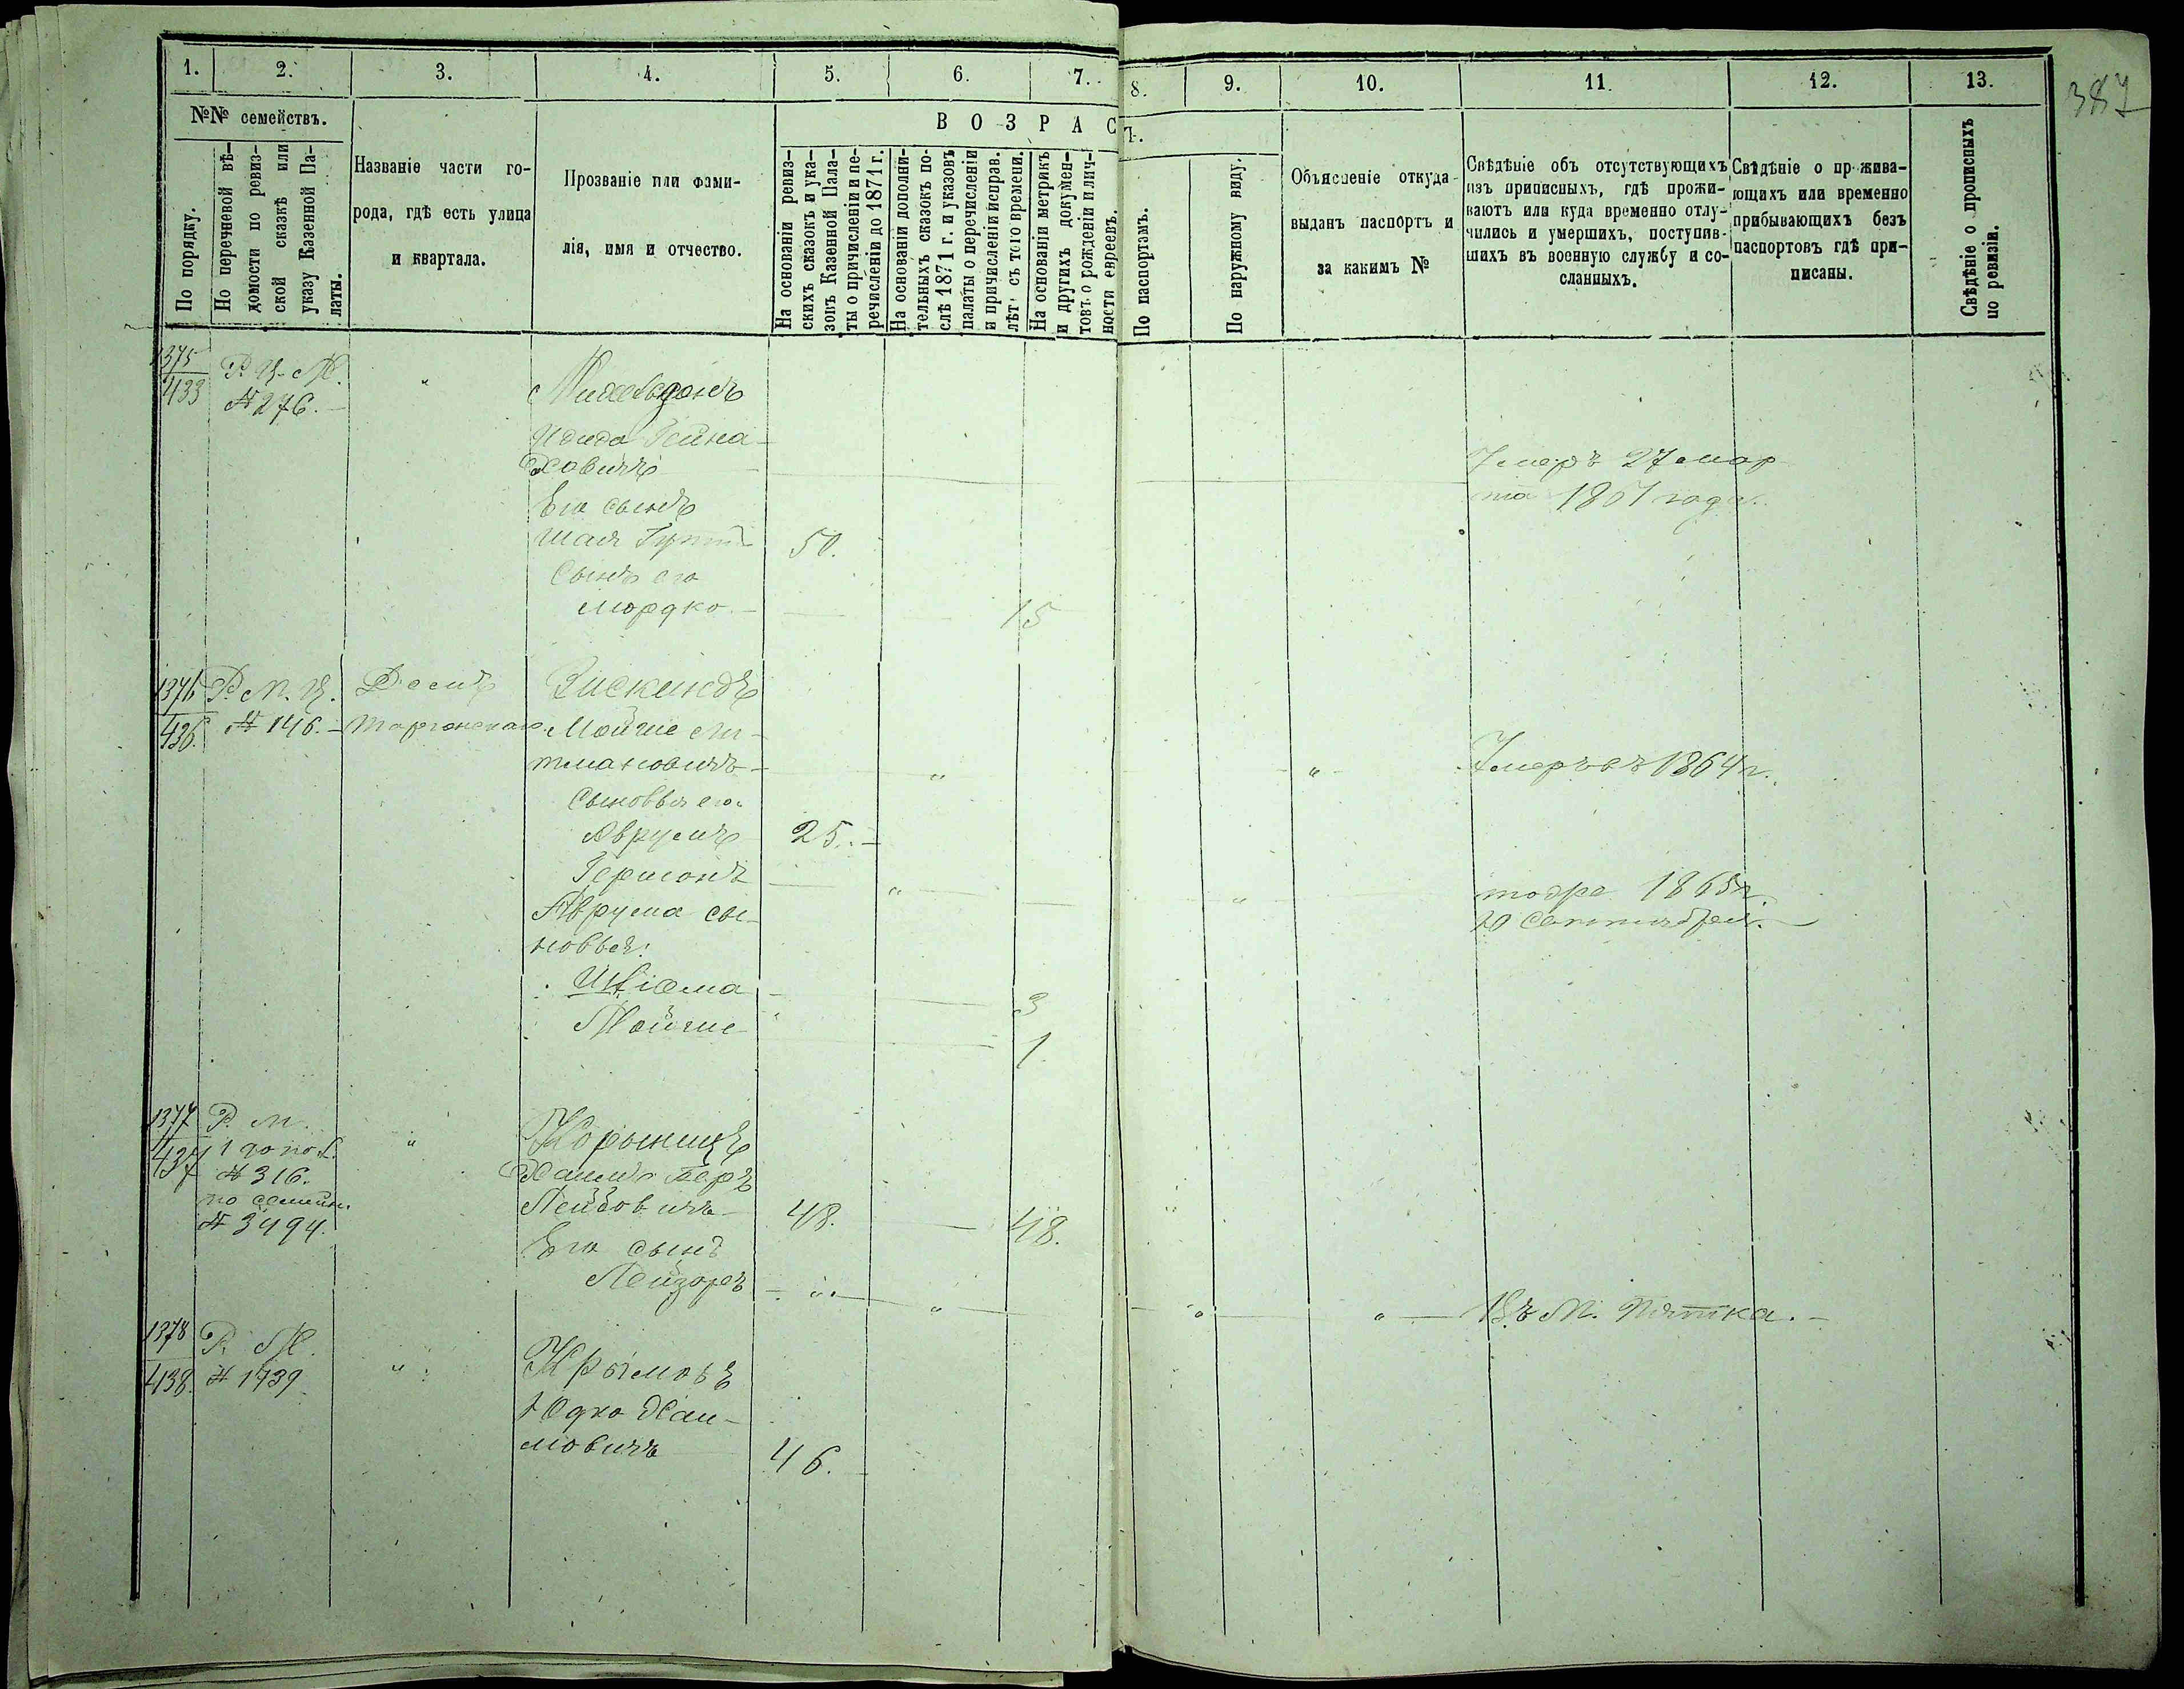 387
1. 2. 3. 4. 5. 6. 7. 8. 9. 10. 11. 12. 13.
№№ семействъ.
По порядку.
По перечневой вѣ-
домости по ревиз-
ской сказкѣ или
указу Казенной Па-
латы.
Названіе части го-
рода, гдѣ есть улица
и квартала.
Прозваніе или фами-
лія, имя и отчество.
ВОЗРАСТ.
На основаніи ревиз-
скихъ сказокъ и ука-
зовъ Казенной Пала-
ты о причисленіи и пе-
речисленіи до 1871 г.
На основаніи дополни-
тельныхъ сказокъ по-
слѣ 1871 г. и указовъ
палаты о перечисленіи
и причисленіи исправ.
лѣтъ съ того времени.
На основаніи метрикъ
и другихъ докумен-
товъ о рожденіи и лич-
ности евреевъ.
По паспортамъ.
По наружному виду.
Объясненіе откуда
выданъ паспортъ и
за какимъ №
Свѣдѣніе объ отсутствующихъ
изъ приписныхъ, гдѣ прожи-
ваютъ или куда временно отлу-
чились и умершихъ, поступив-
шихъ въ военную службу и со-
сланныхъ.
Свѣдѣніе о прожива-
ющихъ или временно
прибывающихъ безъ
паспортовъ гдѣ при-
писаны.
Свѣдѣніе о прописныхъ
по ревизіи.
1375
433
№ 276.
"
Михельзонъ
ховичъ
Умеръ 27 мар
та 1861 года.
Его сынъ
Шая 50.
Сынъ его
Мордко. 15
1376
436.
Р. М.
№ 146.
Домъ
Зискиндъ
Мойше Ли-
тмановичъ " " Умеръ въ 1864 г.
Сыновья его
Аврумъ 25.
Гершонъ " " тоже 1865 г.
10 Сентября.
Аврума сы-
новья:
Шліома 3
Мойше 1.
1377
437
Р. М.
1 допол.
№ 316.
по семейн.
№ 3494.
"
Хаимъ Беръ
Лейбовичъ 48. 48.
Его сынъ
Лейзоръ " " " " Въ М. Пятка.
1378
438.
Р. М.
№ 1739
"
Крымовъ
Юдко Хаи-
мовичъ 46.